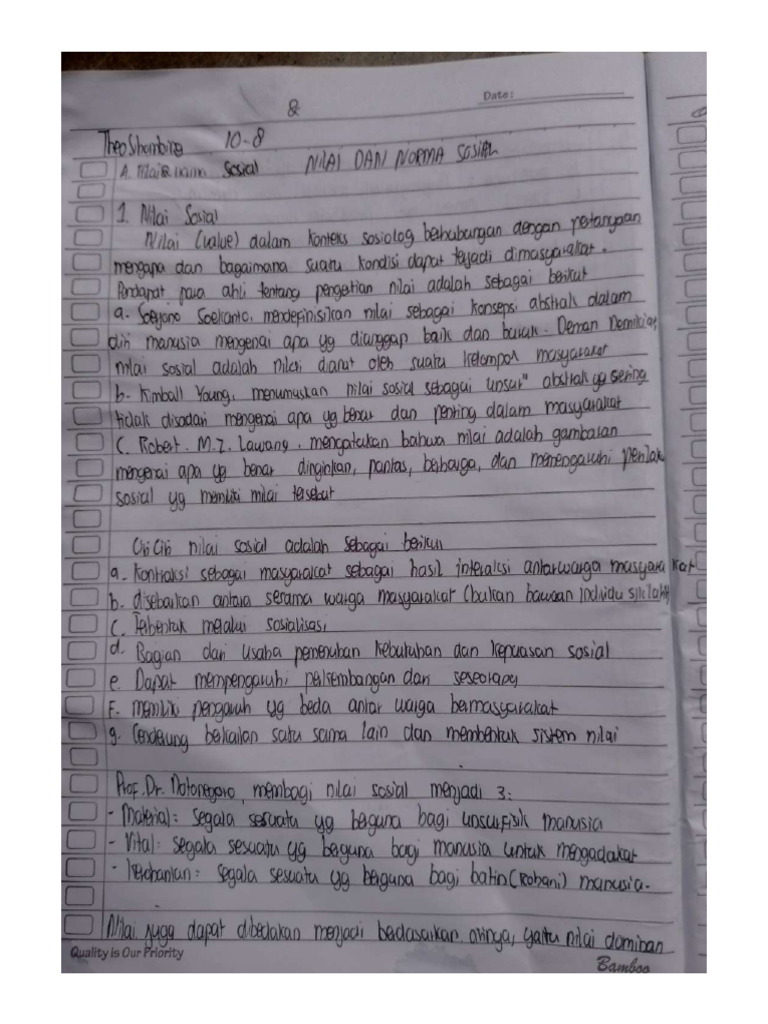 &
Date:
Theo Sihombing 10-8
A. Nilai Sosial NILAI DAN NORMA SOSIAL
1. Nilai Sosial
Nilai (value) dalam konteks sosiolog berhubungan dengan pertanyaan
mengapa dan bagaimana suatu kondisi dapat terjadi dimasyarakat.
Pendapat para ahli tentang pengertian nilai adalah sebagai berikut
a. Soejono Soekanto, mendefinisikan nilai sebagai konsepsi abstrak dalam
diri manusia mengenai apa yg dianggap baik dan buruk. Deman Demikian
nilai sosial adalah nilai dianut oleh suatu kelompok masyarakat
b. Kimball Young, menumuskan nilai sosial sebagai unsur" abstrak yg sering
tidak disadari mengenai apa yg benar dan penting dalam masyarakat
C. Robert. M.Z. Lawang, mengatakan bahwa nilai adalah gambaran
mengenai apa yg benar diinginkan, pantas, berharga, dan memengaruhi perilak
sosial yg memiliki nilai tersebut
Ciri Ciri nilai sosial adalah sebagai berikut
a. Kontraksi sebagai masyarakat sebagai hasil interaksi antarwarga masyarakat
b. disebarkan antara sesama warga masyarakat (bukan bawaan individu
C. Terbentuk melalui sosialisasi
d. Bagian dari usaha pemenuhan kebutuhan dan kepuasan sosial
e. Dapat mempengaruhi perkembangan dari seseorang
F. memiliki pengaruh yg beda antar warga bermasyarakat
g. Cenderung berkaitan satu sama lain dan membentuk sistem nilai
Prof. Dr. Notonegoro, membagi nilai sosial menjadi 3:
- Material: Segala sesuatu yg berguna bagi unsur fisik manusia
- Vital: segala sesuatu yg berguna bagi manusia untuk mengadakat
- Kerohanian: segala sesuatu yg berguna bagi batin (Rohani) manusia.
Nilai juga dapat dibedakan menjadi berdasarkan cirinya, yaitu nilai dominan
Quality is Our Priority
Bamboo